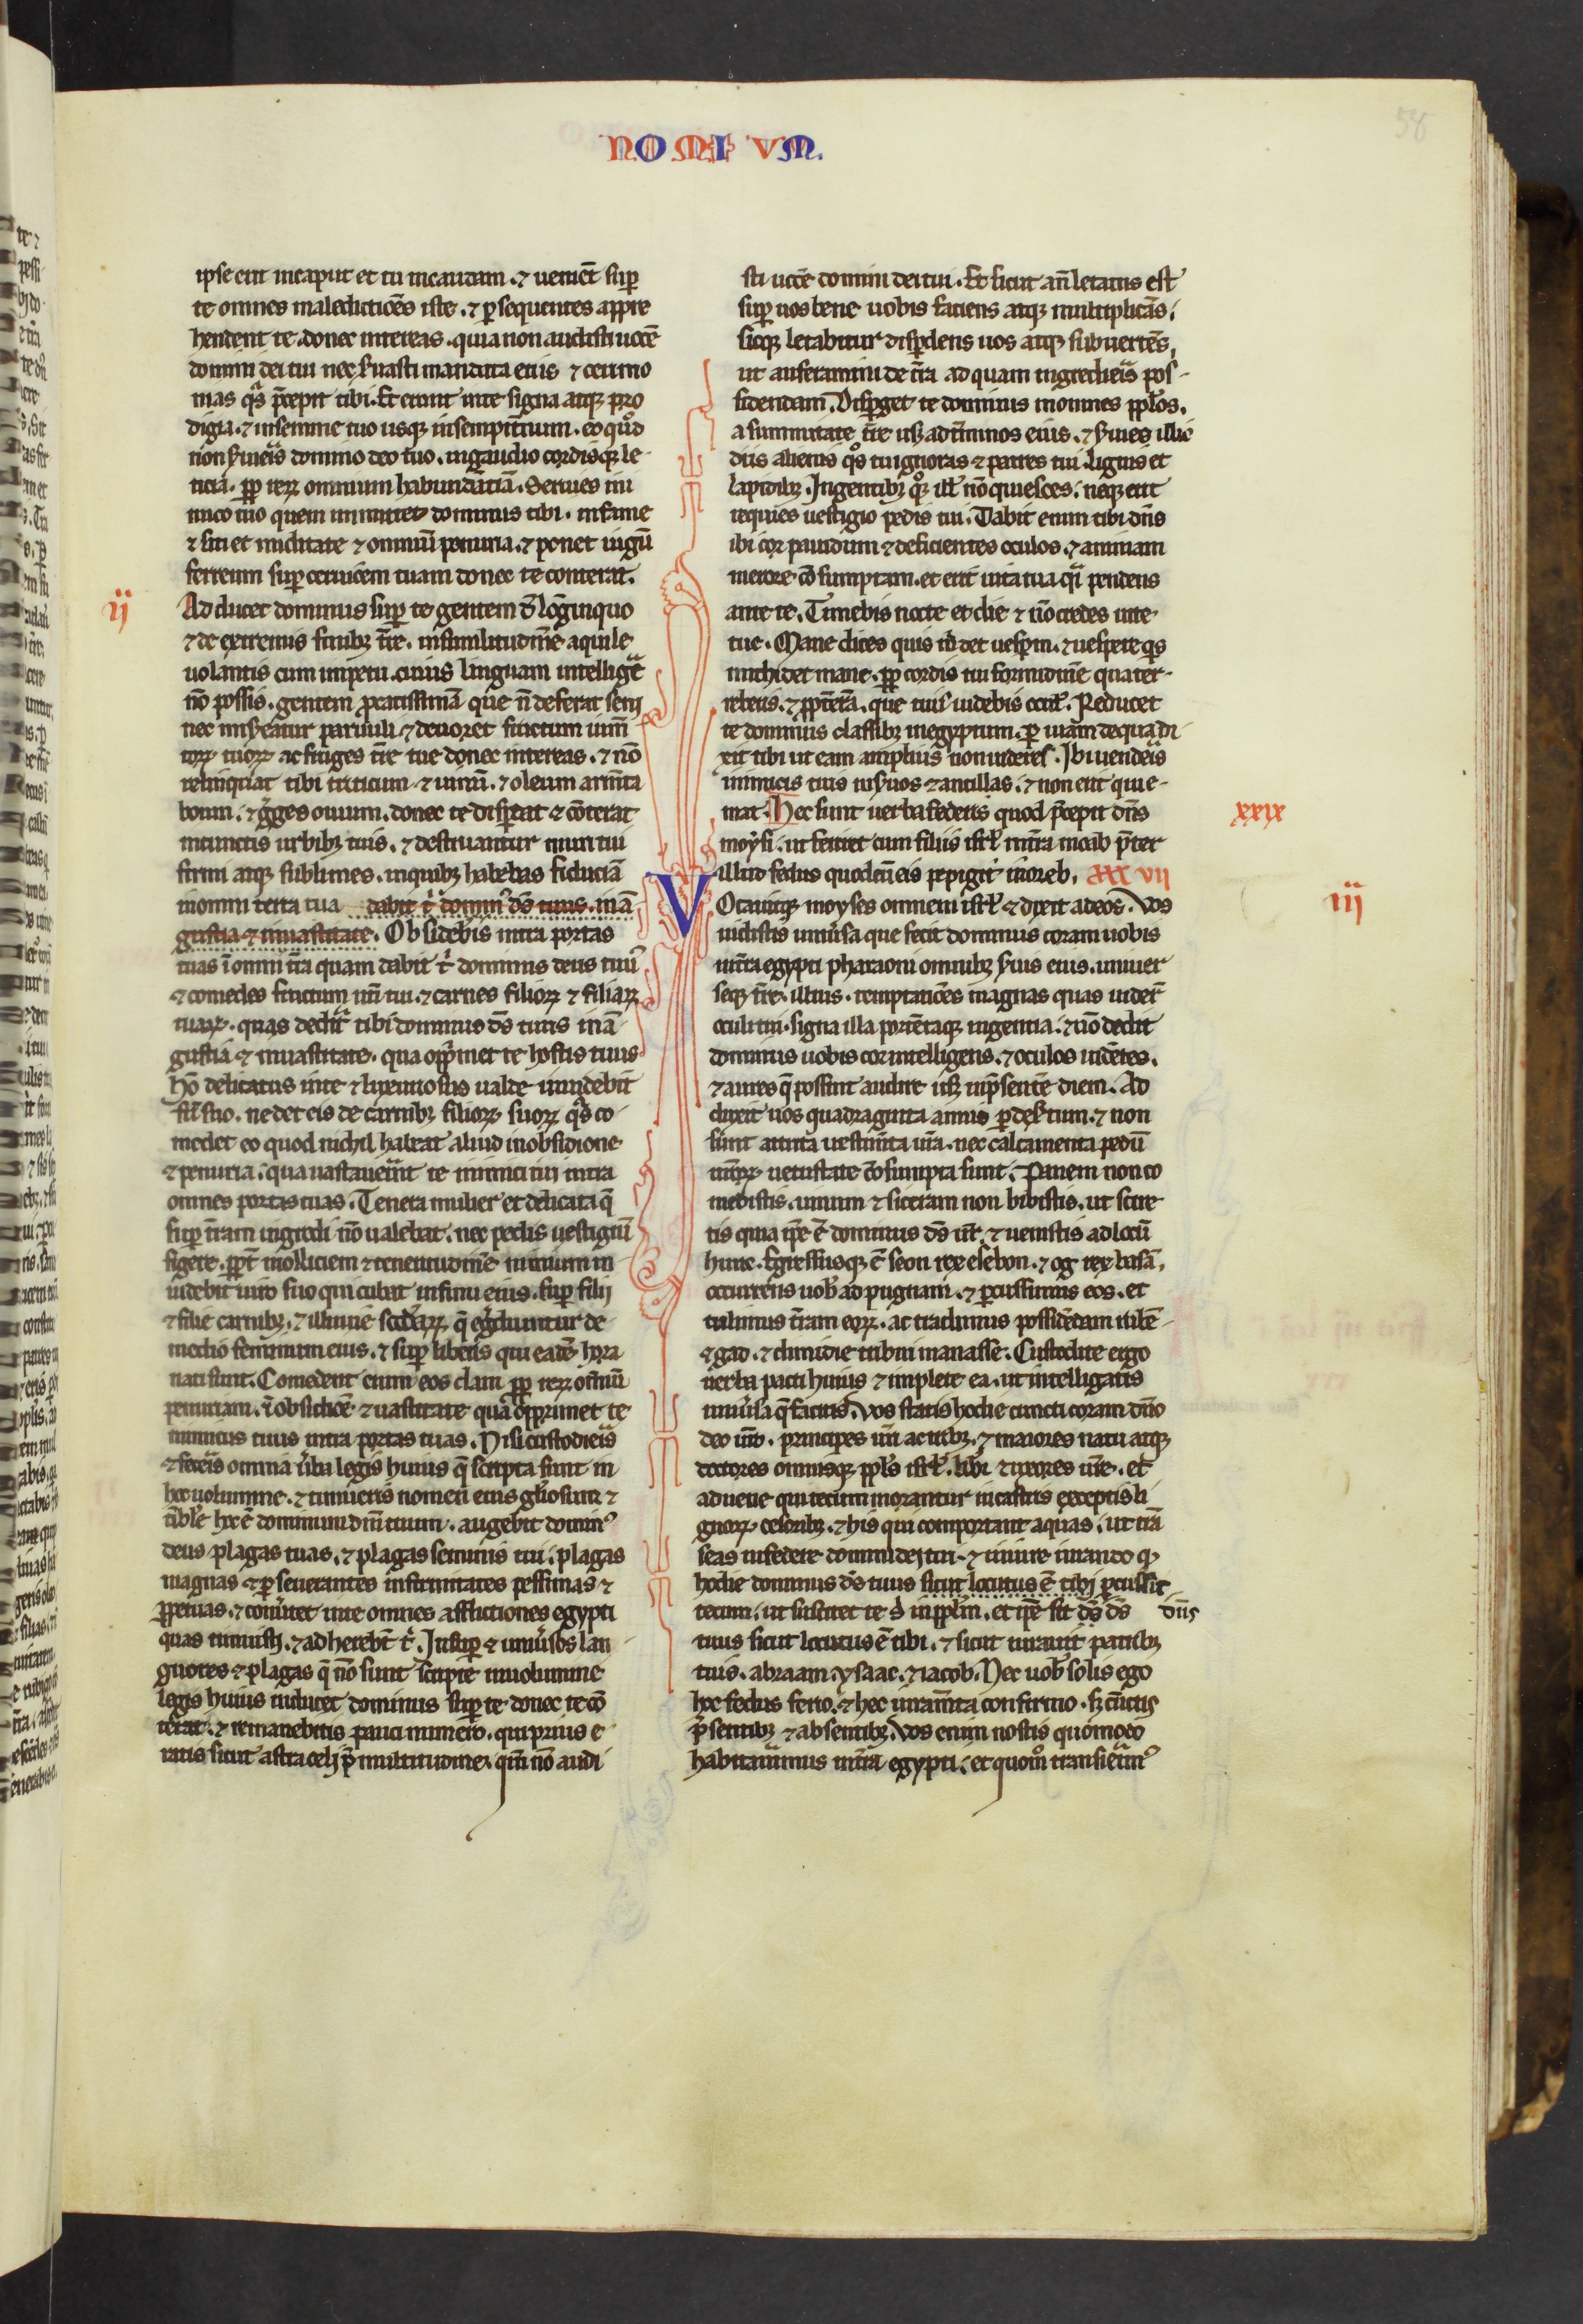 58
NOMIVM.
ipse erit incaput et tu incaudam. ⁊ uenient sup̱
te omnes maledictiões iste. ⁊ p̱sequentes appre
hendent te. donec intereas. quia non audisti uocē
domini dei tui nec s̾uasti mandata eius ⁊ cerimo
nias q̄s p̄cepit tibi. Et erunt inte signa atqꝫ pro
digia. ⁊ insemine tuo usqꝫ insempit̄num. eo quod
non s̾uieris domino deo tuo. ingaudio cordisqꝫ le
ticia. ꝓp̱ reꝝ omnium habundātiā. Seruies ini
mico tuo quem inmittet dominus tibi. infame
⁊ siti et nuditate ⁊ omniū penuria. ⁊ ponet iugū
ferreum sup̱ ceruicem tuam donec te conterat.
ij
Adducet dominus sup̱ te gentem đ lōginquo
⁊ de extremis finibꝫ t̄re. insimilitudinē aquile
uolantis cum impetu. cuius linguam intelligē
nō possis. gentem ꝓcacissimā que n̄ deferat seni
nec misereatur paruuli. ⁊ deuoret fructum iumt̄
toꝝ tuoꝝ ac fruges t̄re tue donec intereas. ⁊ nō
relinquat tibi triticum ⁊ uinū. ⁊ oleum arm̄ta
boum. ⁊ gͥges ouium. donec te disp̱dat ⁊ cōterat
incunctis urbibꝫ tuis. ⁊ destruantur muri tui
firmi atqꝫ sublimes. inquibꝫ habebas fiduciā
inomni terra tua dabit tͥ dominꝰ dš tuus. inā
gustia ⁊ inuastitate. Obsidebis intra portas
tuas ī omni t̄ra quam dabit tͥ dominus deus tuuš
⁊ comedes fructum ut̄i tui. ⁊ carnes filioꝝ ⁊ filiaꝝ
tuaꝝ. quas dedit̾ tibi dominus dš tuus inā
gustiā ⁊ inuastitate. qua opp̄met te hostis tuus
hō delicatus inte ⁊ luxuriosus ualde inuidebit
frī suo. ne det eis de carnibꝫ filioꝝ suoꝝ q̄s co
medet eo quod nichil habeat aliud inobsidione
⁊ penuria. qua uastauer̄int te inimici tui intra
omnes portas tuas. Tenera mulier et delicata q̄
sup̱ t̄ram ingredi nō ualebat. nec pedis uestigiū
figere. ꝓpt̄ molliciem ⁊ teneritudinē nimium in
uidebit uiro suo qui cubat insinu eius. sup̱ filij
⁊ filie carnibꝫ. ⁊ illuuie scđaꝝ q̄ egͥdiuntur de
medio feminum eius. ⁊ sup̱ liberis qui eadē hora
nati sunt. Comedent enim eos clam ꝓp̱ reꝝ om̄iū
penuriam. ī obsidiōe ⁊ uastitate qua opprimet te
inimicus tuus intra portas tuas. Nisi custodieris
⁊ feceris omnia ūba legis huius q̄ scripta sunt in
hoc uolumine. ⁊ timueris nomen eius gl̄osum ⁊
tibl̄e hoc ē dominum dm̄ tuum. augebit dominꝰ
deus plagas tuas. ⁊ plagas seminis tui. plagas
magnas ⁊ p̱seuerantes infirmitates pessimas ⁊
ꝑpetuas. ⁊ conūtet inte omnes afflictiones egypti
quas timuisti. ⁊ adherebt̄ tͥ. Insup̱ ⁊ uniūsos lan
guores ⁊ plagas q̄ nō sunt scripte inuolumine
legis huius inducet dominus sup̱ te donec te cō
terat. ⁊ remanebitis pauci numero. qui prius e
ratis sicut astra celi p̄ multitudine. qm̄ nō audi
sti uocē domini dei tui. Et sicut an̄ letatus est
sup̱ uos bene uobis faciens atqꝫ multiplicās.
sicqꝫ letabitur disp̱dens uos atqꝫ subuertēs,
ut auferamini de t̄ra ad quam ingredieris pos
sidendam. Disp̱get te dominus inomnes pp̄los.
a summitate t̄re usqꝫ adt̄minos eius. ⁊ s̾uies illic
diis alienis q̄s tu ignoras ⁊ patres tui. lignis et
lapidibꝫ. Ingentibꝫ qͦꝫ ill̄ nō quiesces. neqꝫ erit
requies uestigio pedis tui. Dabit enim tibi dn̄s
ibi cor pauidum ⁊ deficientes oculos. ⁊ animam
merore cōsumptam. et erit uita tua qͣi pendens
ante te. Timebis nocte et die ⁊ nō credes uite
tue. Mane dices quis m̄ det uesp̱m. ⁊ uespere qͥs
michi det mane. ꝓp̱ cordis tui formidinē quater
reberis. ⁊ ꝓpt̄ ea. que tuis uidebis oculꝭ. Reducet
te dominus classibꝫ inegyptum. p̱ uiam de qua di
xit tibi ut eam amplius non uideres. Ibi uenderis
inimicis tuis inseruos ⁊ ancillas. ⁊ non erit qui e
mat. Hec sunt uerba federis quod p̄cepit dn̄s
xxix
moysi. ut feriret cum filiis isrl̄ int̄ra moab p̄ter
illud fedus quod cū eis pepigit inoreb. XXVII
VOcauitqꝫ moyses omnem isrl̄ ⁊ dixit ad eos. Vos
iij
uidistis uniūsa que fecit dominus coram uobis
int̄ra egypti pharaoni omnibꝫ s̾uis eius. uniuer
seqꝫ t̄re illius. temptatiōes magnas quas uider̄
oculi tui. signa illa portētaqꝫ ingentia. ⁊ nō dedit
dominus uobis cor intelligens. ⁊ oculos uidētes.
⁊ aures q̄ possint audire usqꝫ inp̄sentē diem. Ad
duxit uos quadraginta annis p̱ des̾tum. ⁊ non
sunt attrita uestim̄ta ur̄a. nec calciamenta pedū
ur̄oꝝ uetustate cōsumpta sunt. Panem non co
medistis. uinum ⁊ siceram non bibistis. ut scire
tis quia ip̄e ē dominus dš ur̄. ⁊ uenistis ad locū
hunc. Egressusqꝫ ē seon rex esebon. ⁊ og rex basā,
occurrens uobꝭ ad pugnam. ⁊ p̱cussimus eos. et
tulimus t̄ram eoꝝ. ac tradimus possidēdam rubē
⁊ gad. ⁊ dimidie tribui manasse. Custodite ergo
uerba pacti huius ⁊ implete ea. ut intelligatis
uniūsa q̄ facitis. Vos statis hodie cuncti coram dn̄o
deo ur̄o. principes ur̄i ac tribꝫ. ⁊ maiores natu atqꝫ
doctores omnisqꝫ pp̄ls isrl̄. lib̾i ⁊ uxores ur̄e. et
aduene qui tecum morantur incastris exceptis li
gnoꝝ cesoribꝫ. ⁊ his qui comportant aquas. ut trā
seas infedere domini dei tui. ⁊ iniure iurando qꝫ
hodie dominus dš tuus sicut locutus ē tibi p̱cussit
tecum. ut suscitet te sͥ inpp̄lm. et ip̄e sit dš dš
dn̄s
tuus sicut locutus ē tibi. ⁊ sicut iurauit patribꝫ
tuis. abraam. ysaac. ⁊ iacob. Nec uobꝭ solis ego
hoc fedus ferio. ⁊ hec iuram̄ta confirmo. sꝫ cūctis
p̄sentibꝫ ⁊ absentibꝫ. Vos enim nostis quomodo
habitauimus int̄ra egypti. et quom̄ transierim̾